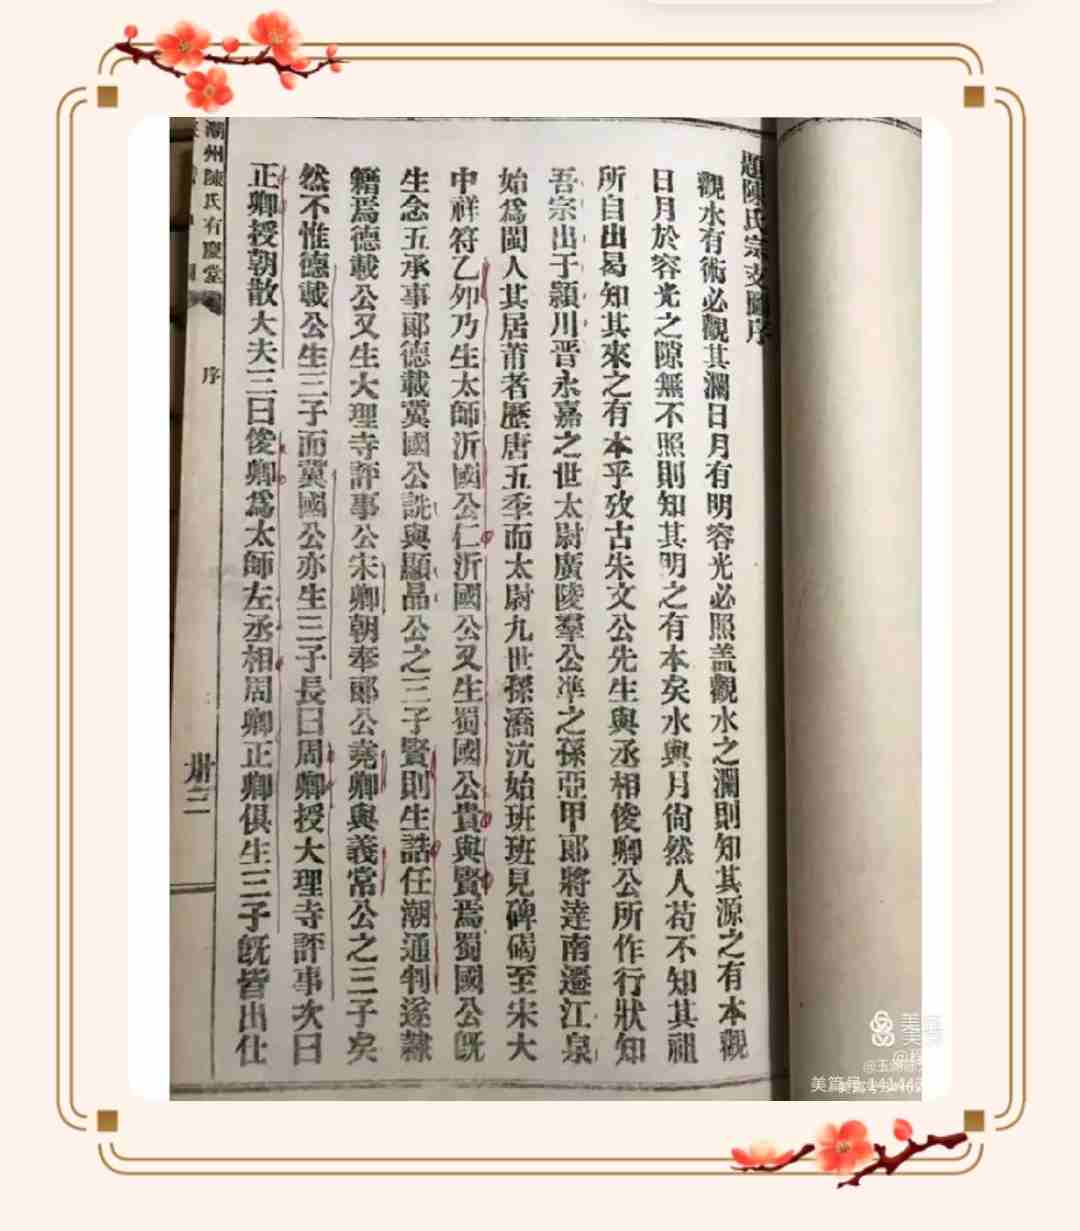 題陳氏宗支圖序
觀水有術必觀其瀾日月有明容光必照盖觀水之瀾則知其源之有本觀
日月於容光之隙無不照則知其明之有本矣水與月尙然人苟不知其祖
所自出曷知其來之有本乎攷古朱文公先生與丞相俊卿公所作行狀知
吾宗出于潁川晋永嘉之世太尉廣陵羣公凖之孫亞甲郞將逹南遷江泉
始爲閩人其居莆者歷唐五季而太尉九世孫濟沆始班班見碑碣至宋大
中祥符乙夘乃生太師沂國公仁沂國公又生蜀國公貴與賢焉蜀國公旣
生念五承事郞德載冀國公詵與顯晶公之三子賢則生誥任潮通判遂隸
籍焉德載公又生大理寺評事公宋卿朝奉郞公堯卿與義常公之三子矣
然不惟德載公生三子而冀國公亦生三子長曰周卿授大理寺評事次曰
正卿授朝散大夫三曰俊卿爲太師左丞相周卿正卿俱生三子旣皆出仕
潮州陳氏有慶堂
序
卅三
美篇